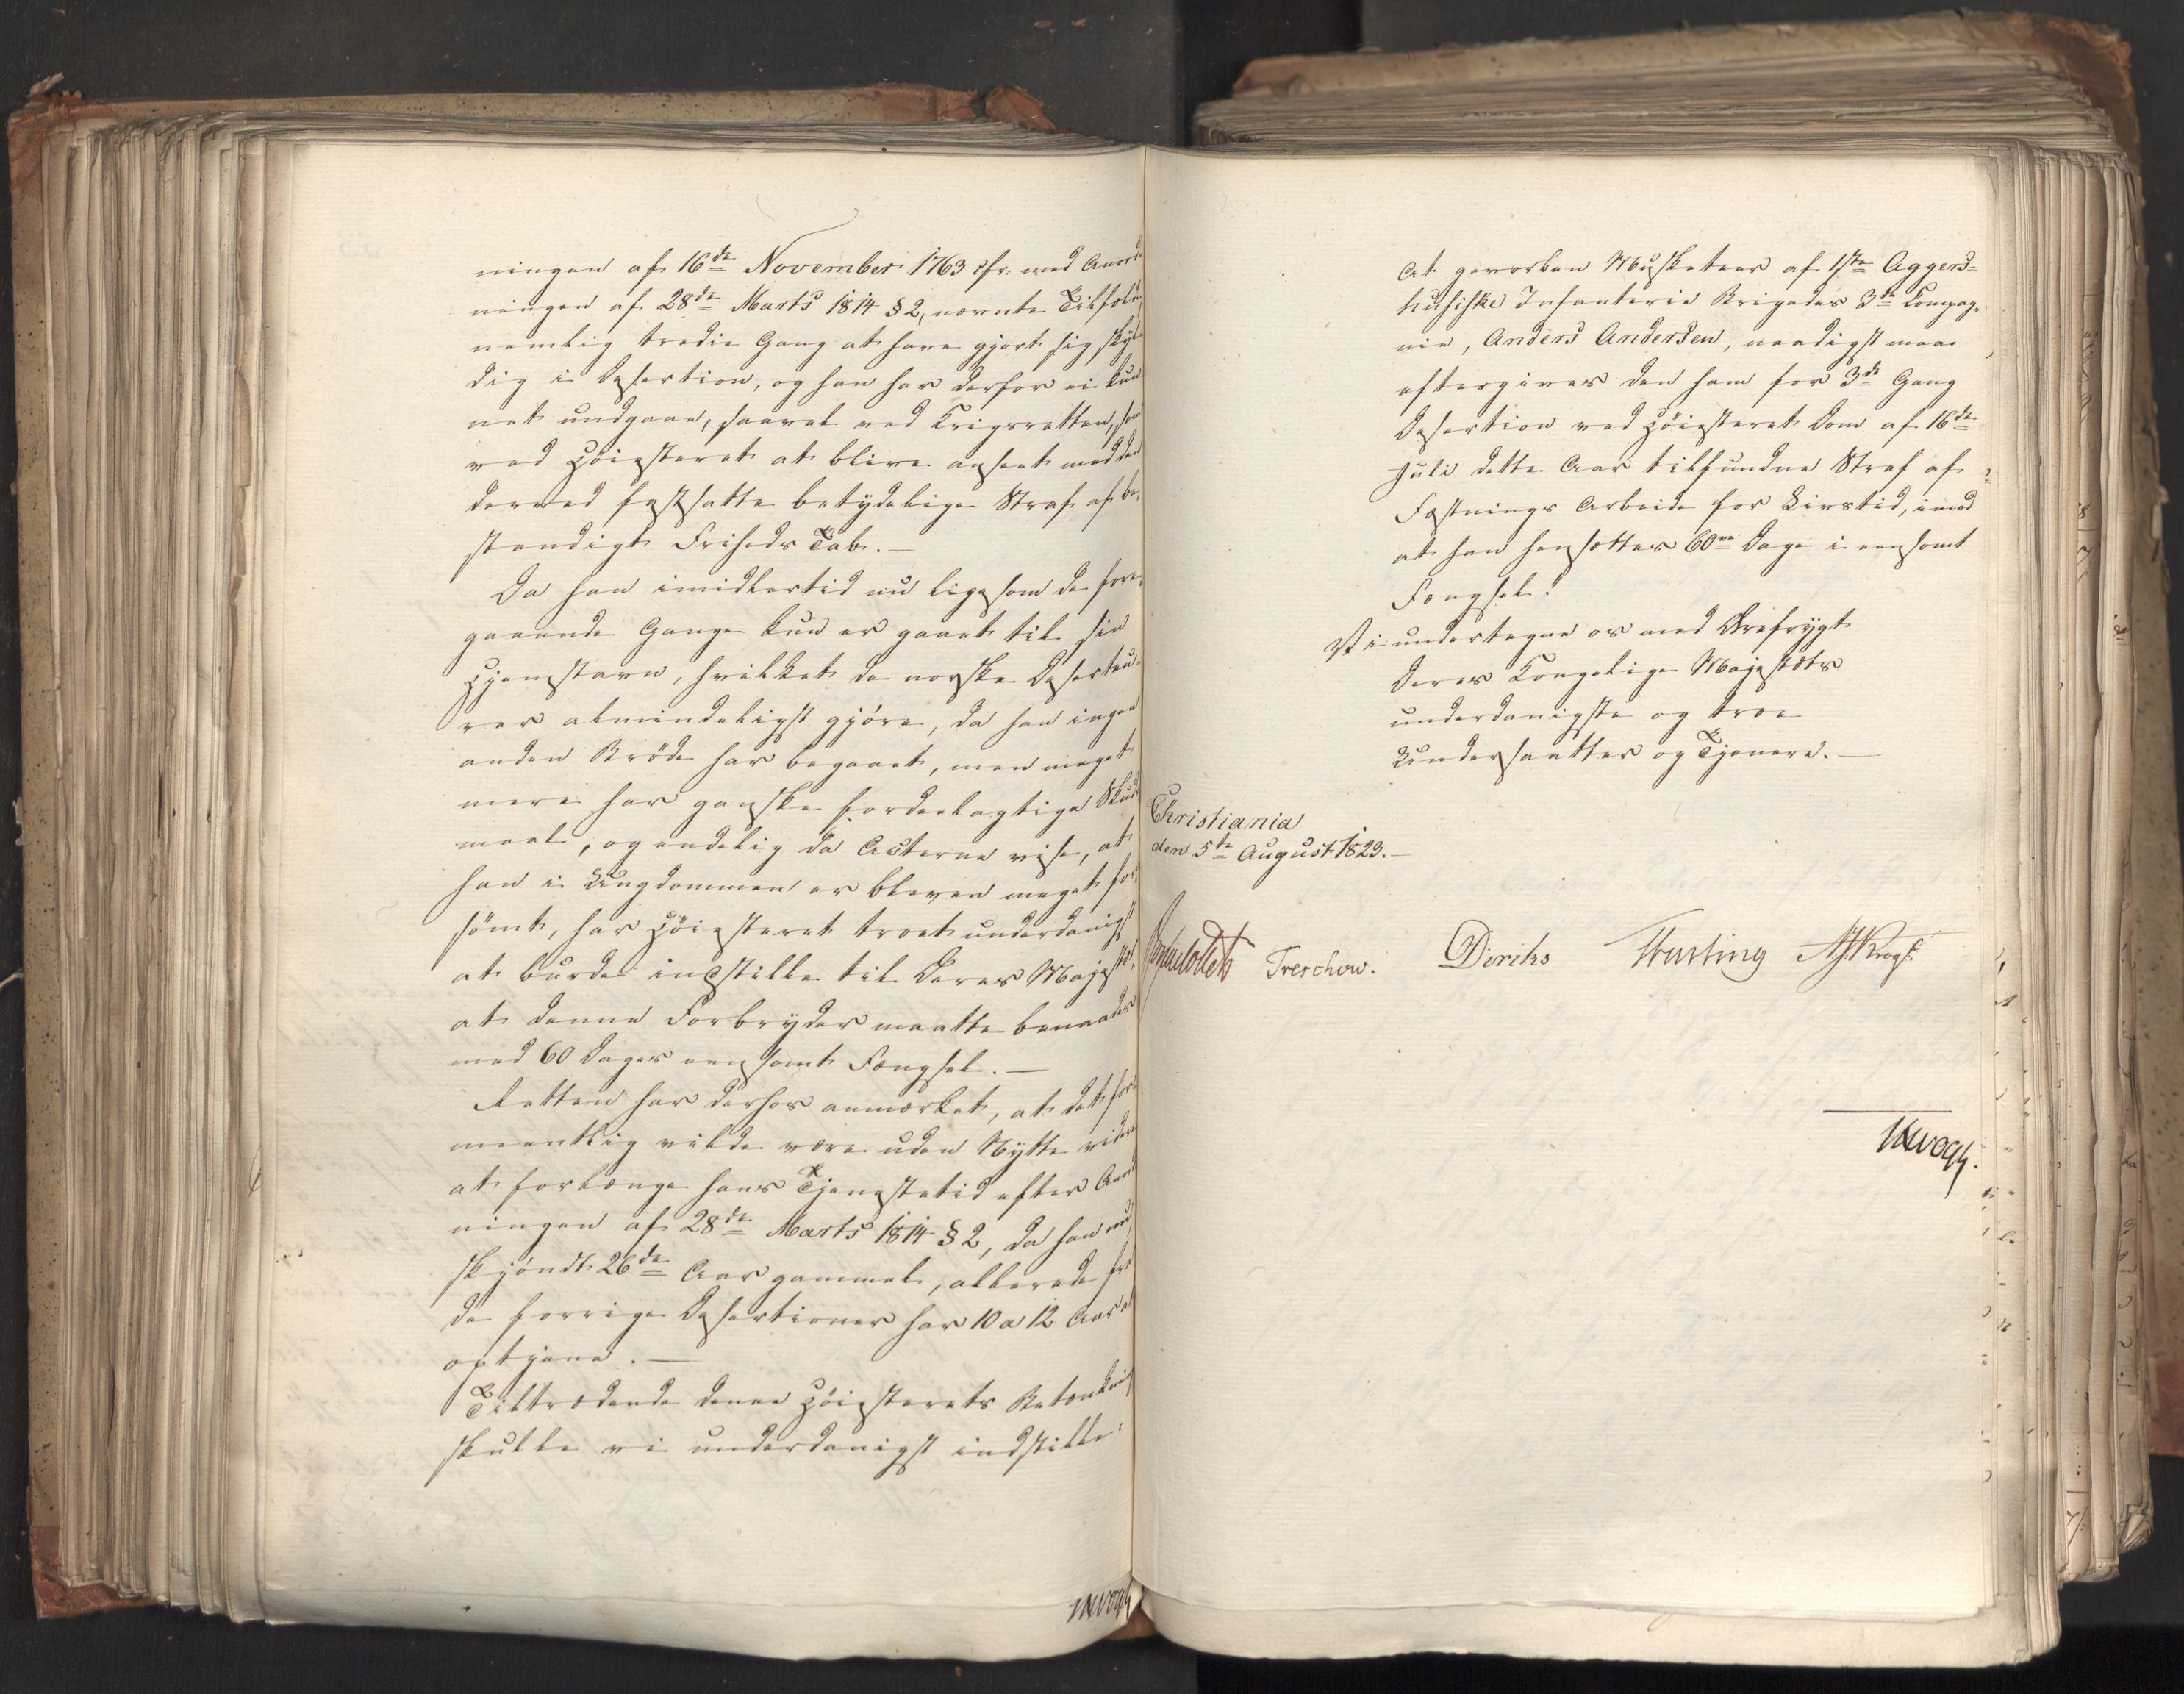 ningen af 16de November 1763 cfr: med Anord-
ningen af 28de Marts 1814 § 2, nævnte Tilfælde,
nemlig tredie Gang at have gjort sig skyl-
dig i Desertion, og han har derfor ei kun-
net undgaae, saavel ved Krigsretten, som
ved Höiesteret at blive anseet med den
derved fastsatte betydelige Straf af be-
standigt Friheds Tab. —
Da han imidlertid nu ligesom de fore-
gaaende Gange kun er gaaet til sin
Hjemstavn, hvilket de norske Deserteu-
rer almindeligst gjöre, da han ingen
anden Bröde har begaaet, men meget
mere har ganske fordeelagtige Skuds-
maal, og endelig da Acterne vise, at
han i Ungdommen er bleven meget for-
sömt, har Höiesteret troet underdanigst
at burde indstille til Deres Majestæt,
at denne Forbryder maatte benaades
med 60 Dages eensomt Fængsel. —
Retten har derhos anmærket, at det for-
meentlig vilde være uden Nytte videre
at forlænge hans Tjenestetid efter Anord-
ningen af 28de Marts 1814 § 2, da han nu,
skjöndt 26de Aar gammel, allerede fra
de forrige Desertioner har 10 a 12 Aar at
aftjene. —
Tiltrædende denne Höiesterets Betænkning
skulle vi underdanigst indstille:
At gevorben Musketeer af 1ste Aggers-
husiske Infanterie Brigades 3de Compag-
nie, Anders Andersen, naadigst maae
eftergives den ham for 3die Gang
Desertion ved Höiesterets Dom af 16de
Juli dette Aar tilfundne Straf af
Fæstnings Arbeide for Livstid, imod
at han hensættes 60ve Dage i eensomt
Fængsel!
Vi undertegne os med Ærefrygt
Deres Kongelige Majestæts
underdanigste og troe
Undersaatter og Tjenere. —
Christiania
den 5te August 1823. —
Treschow. Diriks Fasting Krogh